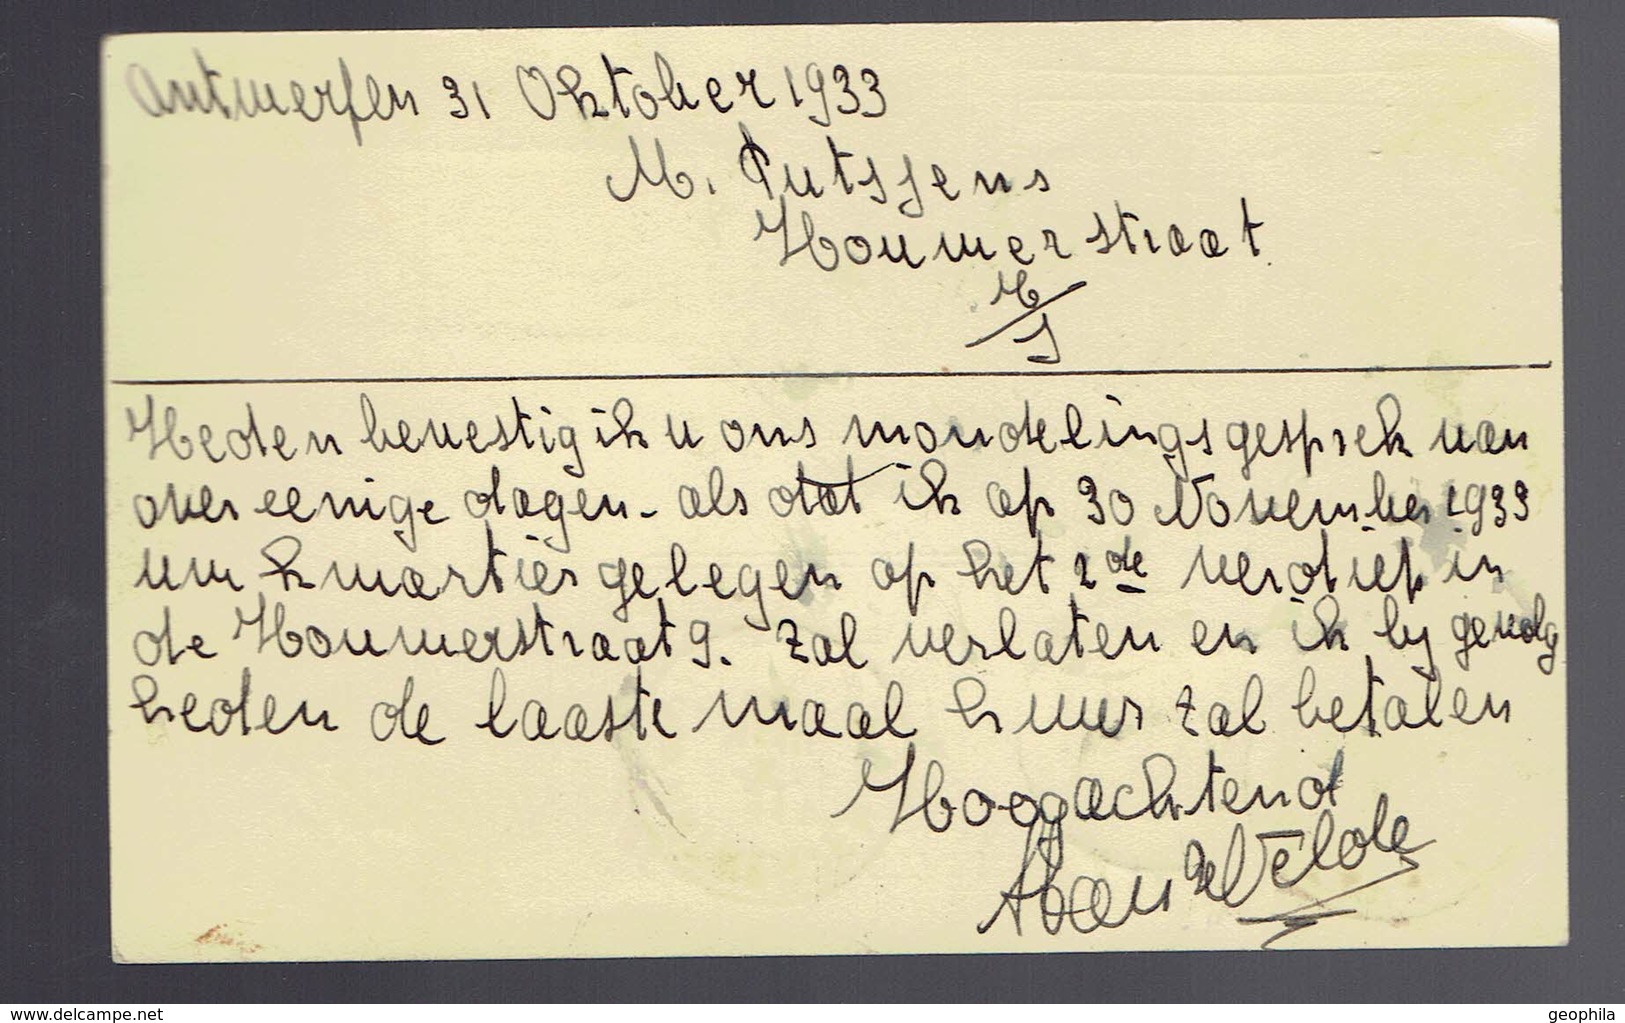 Antwerpen 31 Oktober 1933
M. Putssens
Houwerstraat
E/S
Heden bevestig ik u ons mondelingsgesprek van
over eenige dagen - als dat ik op 30 November 1933
uw kwartier gelegen op het 2de verdiep in
de Houwerstraat 9. zal verlaten en ik by gevolg
heden de laaste maal huur zal betalen
Hoogachtend
Van de Velde
www.delcampe.net
geophila